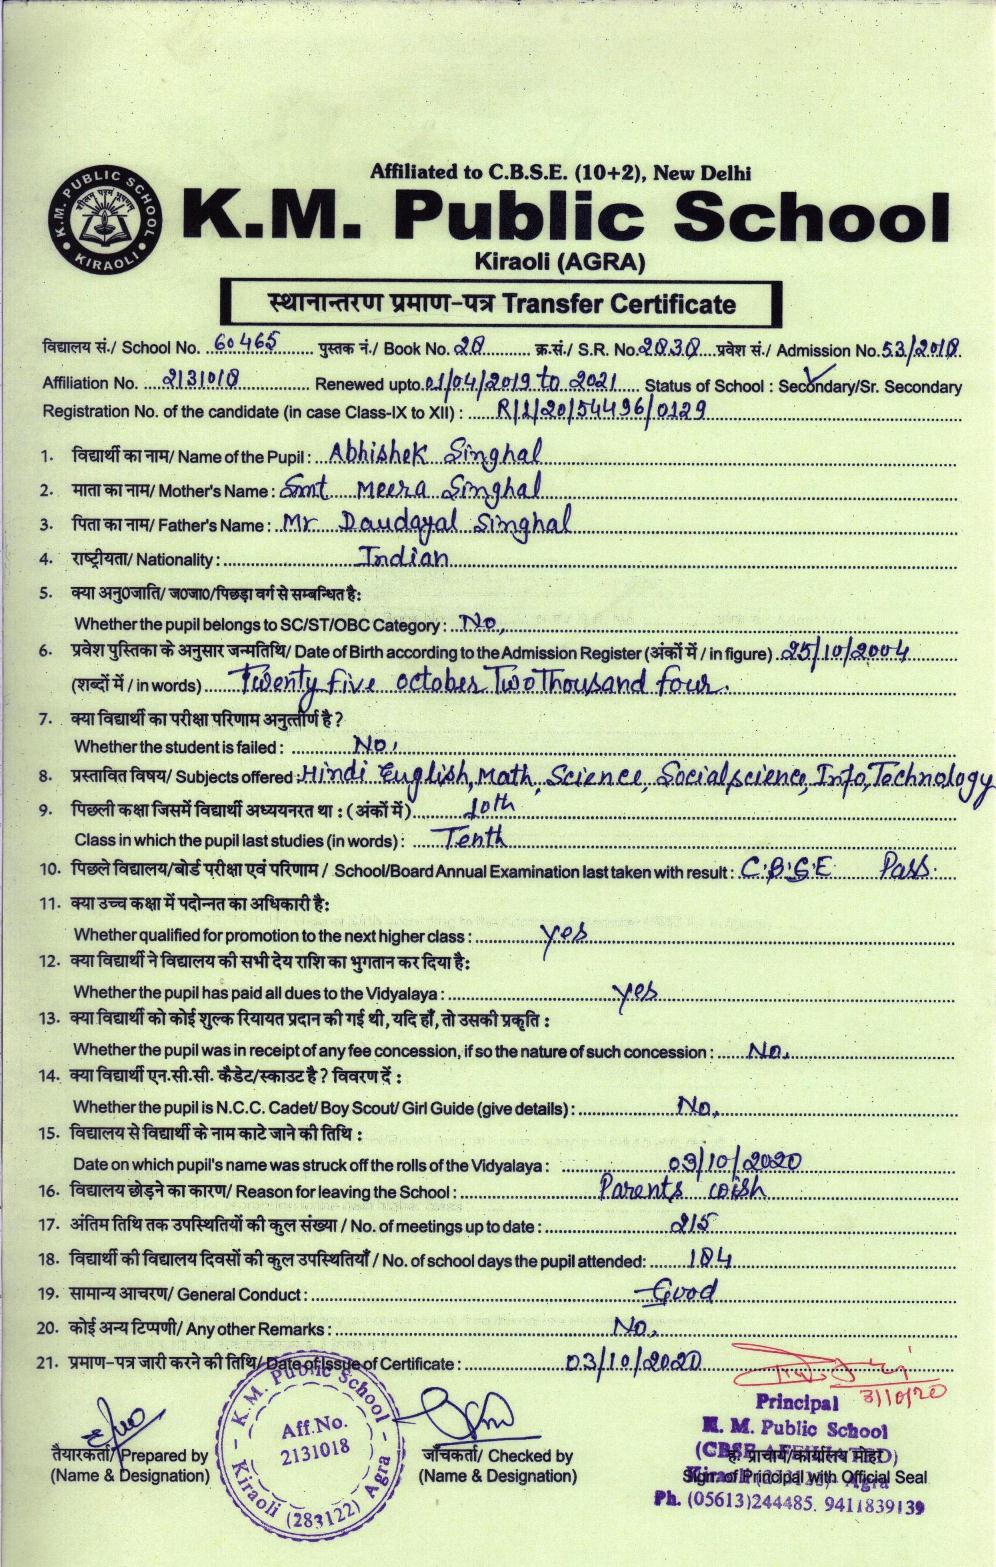 Affiliated to C.B.S.E. (10+2), New Delhi
K.M. PUBLIC SCHOOL
KIRAOLI
K.M. Public School
Kiraoli (AGRA)
स्थानान्तरण प्रमाण-पत्र Transfer Certificate
विद्यालय सं./ School No. 60465 पुस्तक नं./ Book No. 28 क्र.सं./ S.R. No. 2838 प्रवेश सं./ Admission No. 53/2018
Affiliation No. 2131018 Renewed upto 01/04/2019 to 2021 Status of School : Secondary/Sr. Secondary
Registration No. of the candidate (in case Class-IX to XII) : R/1/20/54496/0129
1. विद्यार्थी का नाम/ Name of the Pupil : Abhishek Singhal
2. माता का नाम/ Mother's Name : Smt Meera Singhal
3. पिता का नाम/ Father's Name : Mr Daudayal Singhal
4. राष्ट्रीयता/ Nationality : Indian
5. क्या अनु0जाति/ ज0जा0/पिछड़ा वर्ग से सम्बन्धित है:
Whether the pupil belongs to SC/ST/OBC Category : No,
6. प्रवेश पुस्तिका के अनुसार जन्मतिथि/ Date of Birth according to the Admission Register (अंकों में / in figure) 25/10/2004
(शब्दों में / in words) Twenty five october Two Thousand four.
7. क्या विद्यार्थी का परीक्षा परिणाम अनुत्तीर्ण है ?
Whether the student is failed : No,
8. प्रस्तावित विषय/ Subjects offered : Hindi English, Math, Science, Social science, Info, Technology
9. पिछली कक्षा जिसमें विद्यार्थी अध्ययनरत था : (अंकों में) 10th
Class in which the pupil last studies (in words) : Tenth
10. पिछले विद्यालय/बोर्ड परीक्षा एवं परिणाम / School/Board Annual Examination last taken with result : C.B.S.E Pass.
11. क्या उच्च कक्षा में पदोन्नत का अधिकारी है:
Whether qualified for promotion to the next higher class : yes
12. क्या विद्यार्थी ने विद्यालय की सभी देय राशि का भुगतान कर दिया है:
Whether the pupil has paid all dues to the Vidyalaya : yes
13. क्या विद्यार्थी को कोई शुल्क रियायत प्रदान की गई थी, यदि हाँ, तो उसकी प्रकृति :
Whether the pupil was in receipt of any fee concession, if so the nature of such concession : No,
14. क्या विद्यार्थी एन.सी.सी. कैडेट/स्काउट है ? विवरण दें :
Whether the pupil is N.C.C. Cadet/ Boy Scout/ Girl Guide (give details) : No,
15. विद्यालय से विद्यार्थी के नाम काटे जाने की तिथि :
Date on which pupil's name was struck off the rolls of the Vidyalaya : 03/10/2020
16. विद्यालय छोड़ने का कारण/ Reason for leaving the School : Parents wish
17. अंतिम तिथि तक उपस्थितियों की कुल संख्या / No. of meetings up to date : 215
18. विद्यार्थी की विद्यालय दिवसों की कुल उपस्थितियाँ / No. of school days the pupil attended: 184
19. सामान्य आचरण/ General Conduct : Good
20. कोई अन्य टिप्पणी/ Any other Remarks : No,
21. प्रमाण-पत्र जारी करने की तिथि/ Date of Issue of Certificate : 03/10/2020
3/10/20
K. M. Public School
Aff.No.
2131018
Kiraoli (283122) Agra
Principal
K. M. Public School
(CBSE AFFILIATED)
Kiraoli (283122) Agra
Ph. (05613)244485. 9411839139
तैयारकर्ता/ Prepared by
(Name & Designation)
जाँचकर्ता/ Checked by
(Name & Designation)
ह. प्राचार्य/कार्यालय मोहर
Sign. of Principal with Official Seal